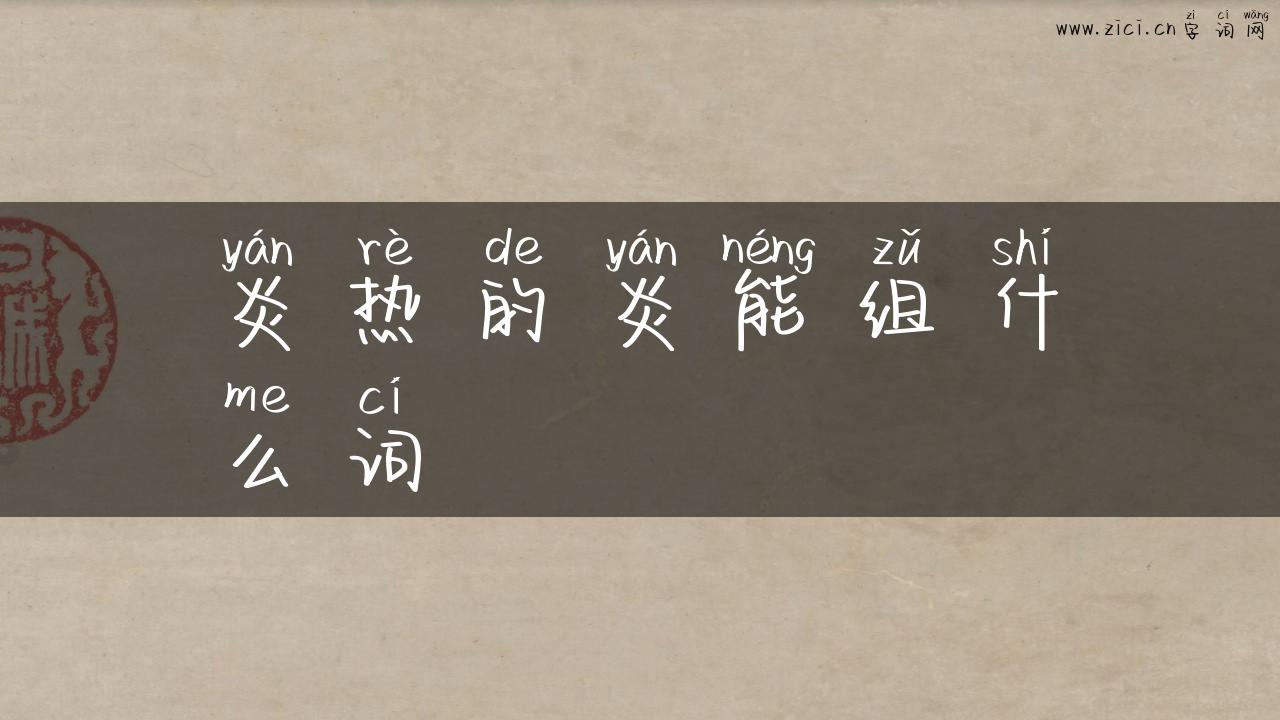 zì cí wǎng
www.zici.cn 字 词 网
yán rè de yán néng zǔ shí
炎 热 的 炎 能 组 什
me cí
么 词